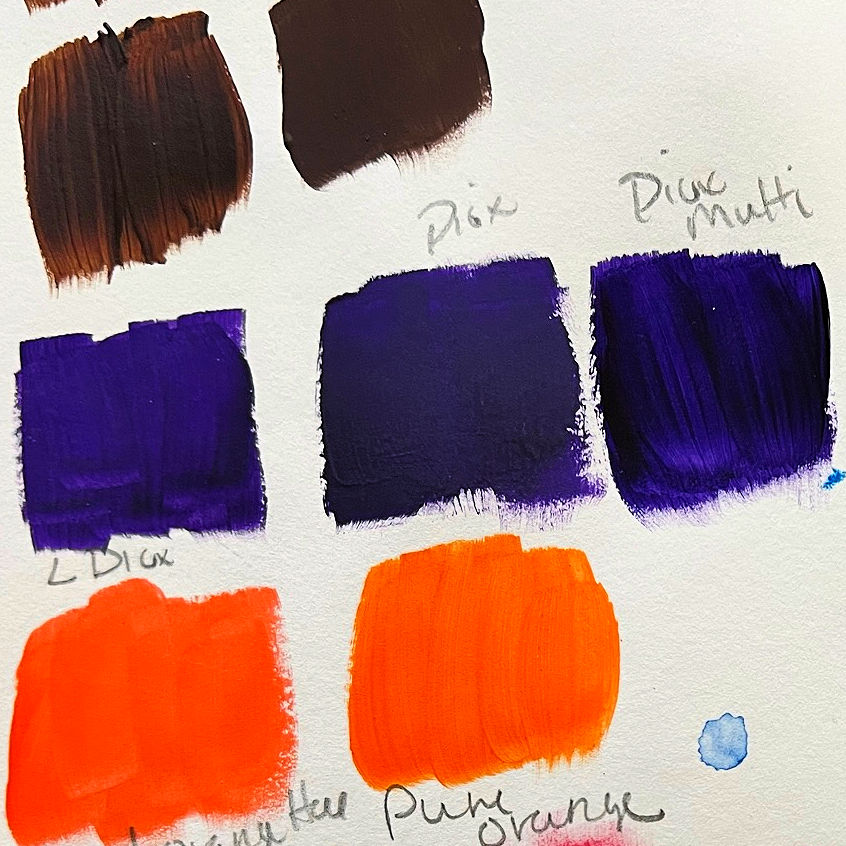 Diox
Diox
Multi
L Diox
Hue
Pure
Orange